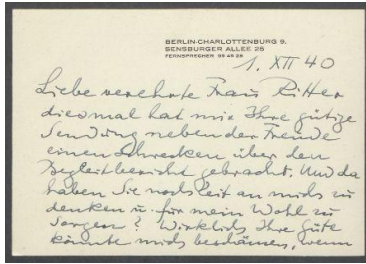 BERLIN-CHARLOTTENBURG 9.
SENSBURGER ALLEE 26
FERNSPRECHER 99 45 28
1. XII 40
Liebe verehrte Frau Ritter
diesmal hat mir Ihre gütige
Sendung neben der Freude
einen Schrecken über den
Begleitbericht gebracht. Und da
haben Sie noch Zeit an mich zu
denken u. für mein Wohl zu
Sorgen? Wirklich Ihre Güte
könnte mich beschämen, wenn